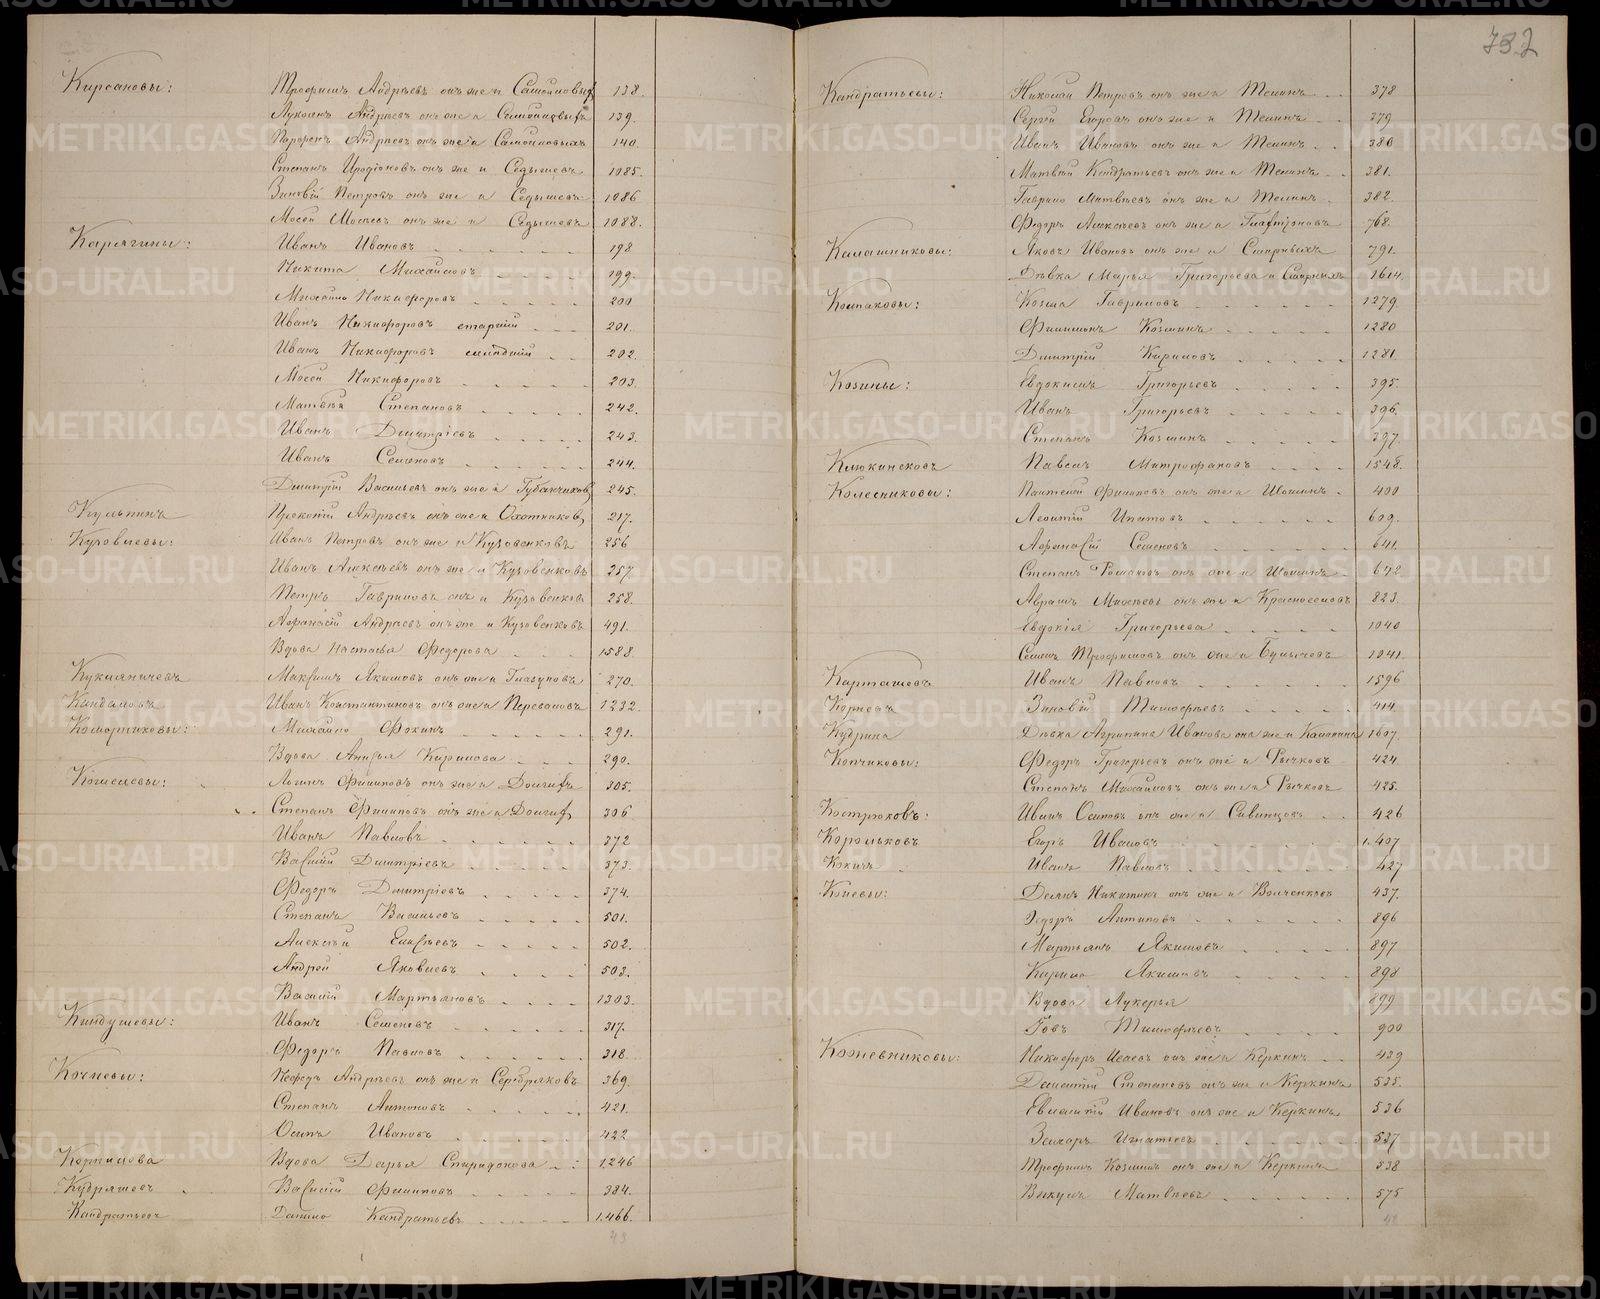 732
Кирсановы: Трофимъ Андреевъ онъ же и Самойловыхъ 138.
Лукоянъ Андреевъ онъ же и Самойловыхъ 139.
Парфенъ Андреевъ онъ же и Самойловыхъ 140.
Степанъ Иродіоновъ онъ же и Седышевъ 1085.
Зиновій Петровъ онъ же и Седышевъ 1086
Мосей Моисеевъ онъ же и Седышевъ 1088.
Карягины: Иванъ Ивановъ 198
Никита Михайловъ 199.
Михайло Никифоровъ 200
Иванъ Никифоровъ старшій 201.
Иванъ Никифоровъ младшій 202.
Мосей Никифоровъ 203.
Матвѣй Степановъ 242.
Иванъ Дмитріевъ 243.
Иванъ Семеновъ 244.
Дмитрій Васильевъ онъ же и Губанчиковъ 245.
Кульпинъ Прокопій Андреевъ онъ же и Охотниковъ 217.
Иванъ Петровъ онъ же и Кузовенковъ 256
Иванъ Алексѣевъ онъ же и Кузовенковъ 257.
Петръ Гавриловъ онъ и Кузовенковъ 258.
Афанасій Андреевъ онъ же и Кузовенковъ 491.
Вдова Настасья Федорова 1588.
Кукляничевъ Максимъ Якимовъ онъ же и Глазуновъ 270.
Иванъ Константиновъ онъ же и Перевозовъ 1232.
Михайло Фокинъ 291.
Вдова Анисья Кирилова 290.
Кошелевы: Логинъ Филиповъ онъ же и Долгихъ 305.
Степанъ Филиповъ онъ же и Долгихъ 306
Иванъ Павловъ 372
Василій Дмитріевъ 373.
Федоръ Дмитріевъ 374.
Степанъ Васильевъ 501.
Алексѣй Елисѣевъ 502.
Андрей Яковлевъ 503.
Василій Мартьяновъ 1303.
Киндушевы: Иванъ Семеновъ 317.
Федоръ Павловъ 318.
Кочневы: Нефедъ Андреевъ онъ же и Серебряковъ 369.
Степанъ Антоновъ 421.
Осипъ Ивановъ 422
Коркилова Вдова Дарья Спиридонова 1246
Кудряшевъ Василій Филиповъ 384.
Кандратьевъ Данило Кандратьевъ 1466.
43
Кандратьевы: Николай Петровъ онъ же и Теминъ 378
Сергѣй Егоровъ онъ же и Теминъ 379
Иванъ Ивановъ онъ же и Теминъ 380
Матвѣй Кандратьевъ онъ же и Теминъ 381.
Гаврило Матвѣевъ онъ же и Теминъ 382.
Федоръ Алексѣевъ онъ же и 768.
Калашниковы: Яковъ Ивановъ онъ же и 791.
Дѣвка Марья Григорьева и 1614.
Колпаковы: Козма Гавриловъ 1279.
Филимонъ Козминъ 1280
Дмитрій Кириловъ 1281.
Козины: Евдокимъ Григорьевъ 395.
Иванъ Григорьевъ 396.
Степанъ Козминъ 397.
Клюкинсковъ Павелъ Митрофановъ 1548.
Колесниковы: Пантелѣй Филиповъ онъ же и Шошинъ 400
Леонтій Ипатовъ 609.
Афанасій Семеновъ 641.
Степанъ Романовъ онъ же и Шошинъ 642
Аврамъ Михѣевъ онъ же и Красноселовъ 823.
Евдокія Григорьева 1040
Семенъ Трофимовъ онъ же и Булычевъ 1041.
Карташевъ Иванъ Павловъ 1596
Корневъ Зиновій Тимофѣевъ 414.
Кудрина Дѣвка Агрипина Иванова она же и Калинина 1607.
Копчиковы: Федоръ Григорьевъ онъ же и Рычковъ 424.
Степанъ Михайловъ онъ же и Рычковъ 425.
Костроковъ: Иванъ Осиповъ онъ же и Сивинцовъ 426
Корольковъ Егоръ Ивановъ 1407
Кокинъ Иванъ Павловъ 427
Коневы: Демидъ Никитинъ онъ же и Волченковъ 437.
Федоръ Антиповъ 896
Мартьянъ Якимовъ 897
Кирило Якимовъ 898
Вдова Лукерья 899
Іовъ Тимофѣевъ 900
Кожевниковы: Никифоръ Исаевъ онъ же и Керкинъ 439
Дементій Степановъ онъ же и Керкинъ 535.
Евлампій Ивановъ онъ же и Керкинъ 536
Захаръ Игнатьевъ 537
Трофимъ Козминъ онъ же и Керкинъ 538
Викулъ Матвѣевъ 575
42